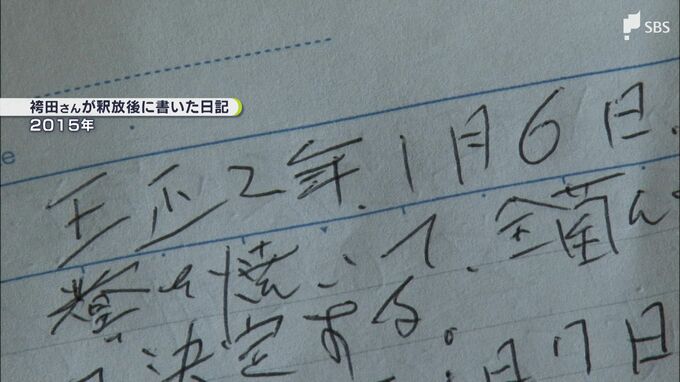 SBS
袴田さんが釈放後に書いた日記
2015年
e
王正2年.1月6日.
を焼いて、全菌ん
決定する。
月7日